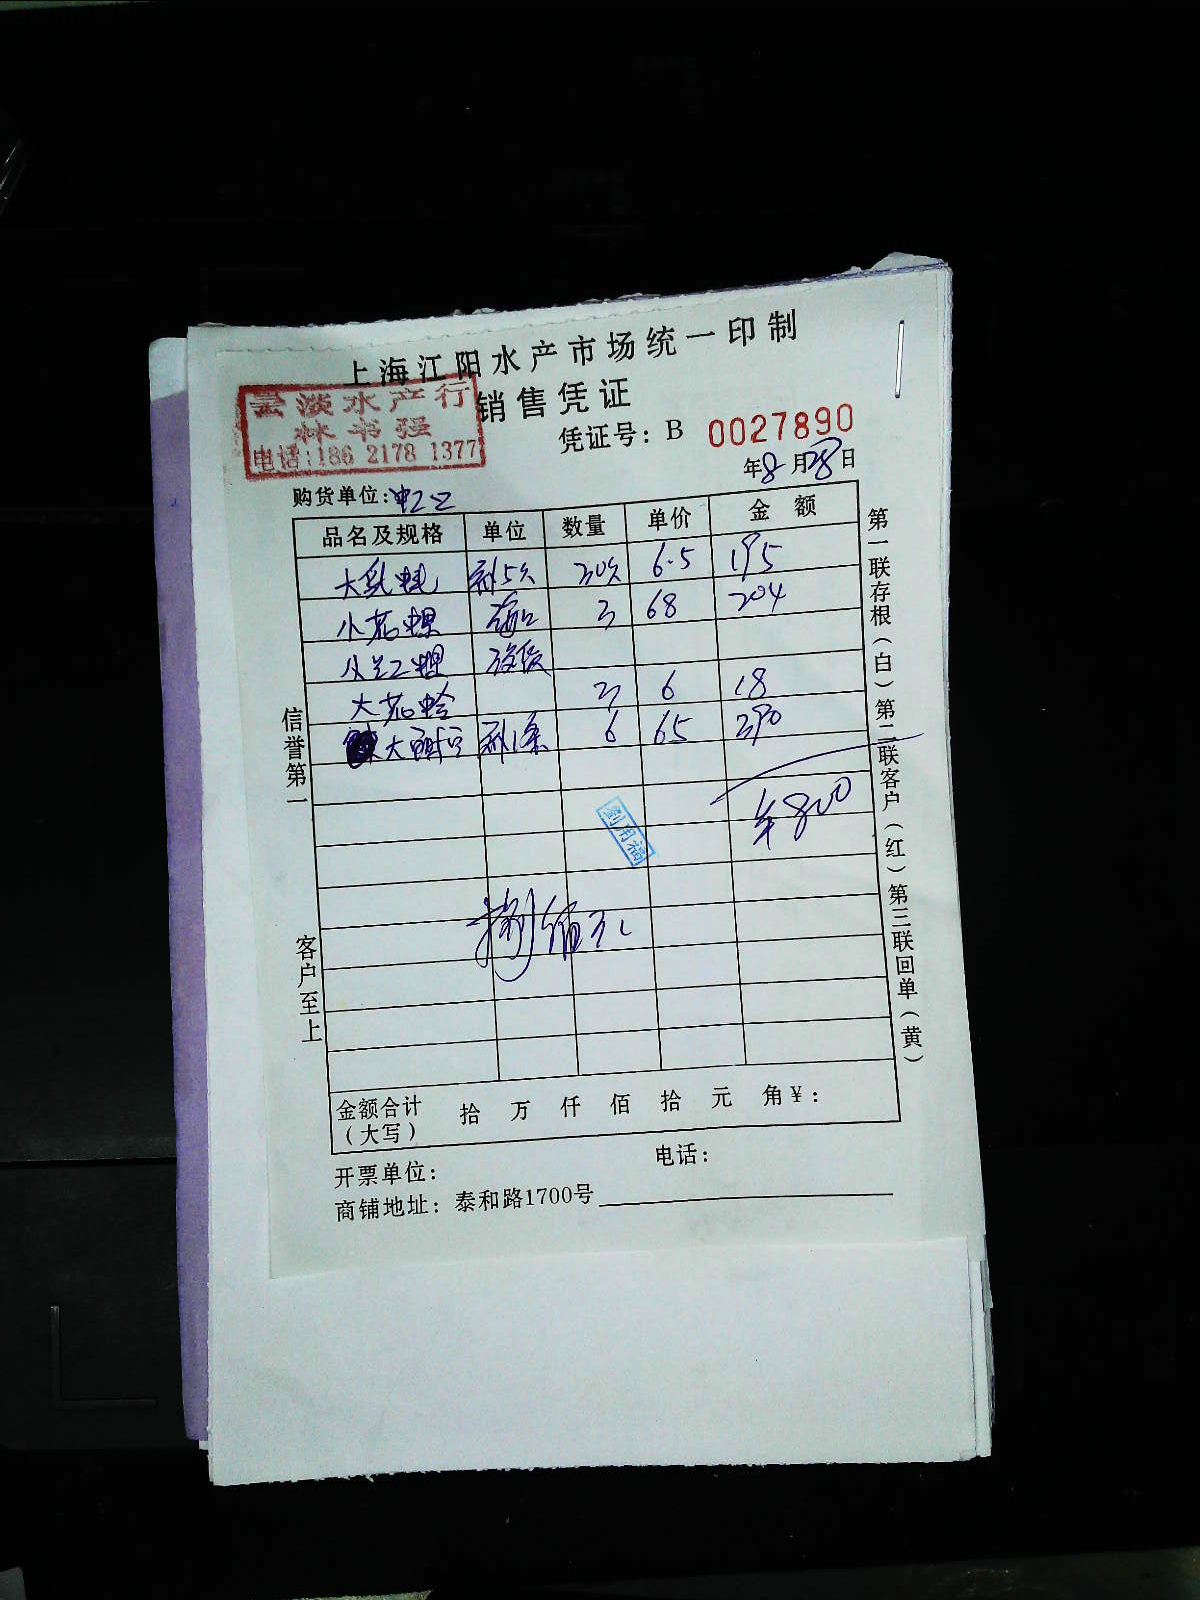 上海江阳水产市场统一印制
销售凭证
淡水产行
林书强
电话:186 2178 1377
凭证号: B 0027890
年8月28日
购货单位:
品名及规格 单位 数量 单价 金额
大 6.5 195
小花螺 3 68 204
大花蛤 3 6 18
大 6 65 390
¥800
劉用福
捌佰元
金额合计(大写) 拾 万 仟 佰 拾 元 角 ¥:
开票单位: 电话:
商铺地址: 泰和路1700号
信誉第一 客户至上
第一联存根(白)第二联客户(红)第三联回单(黄)